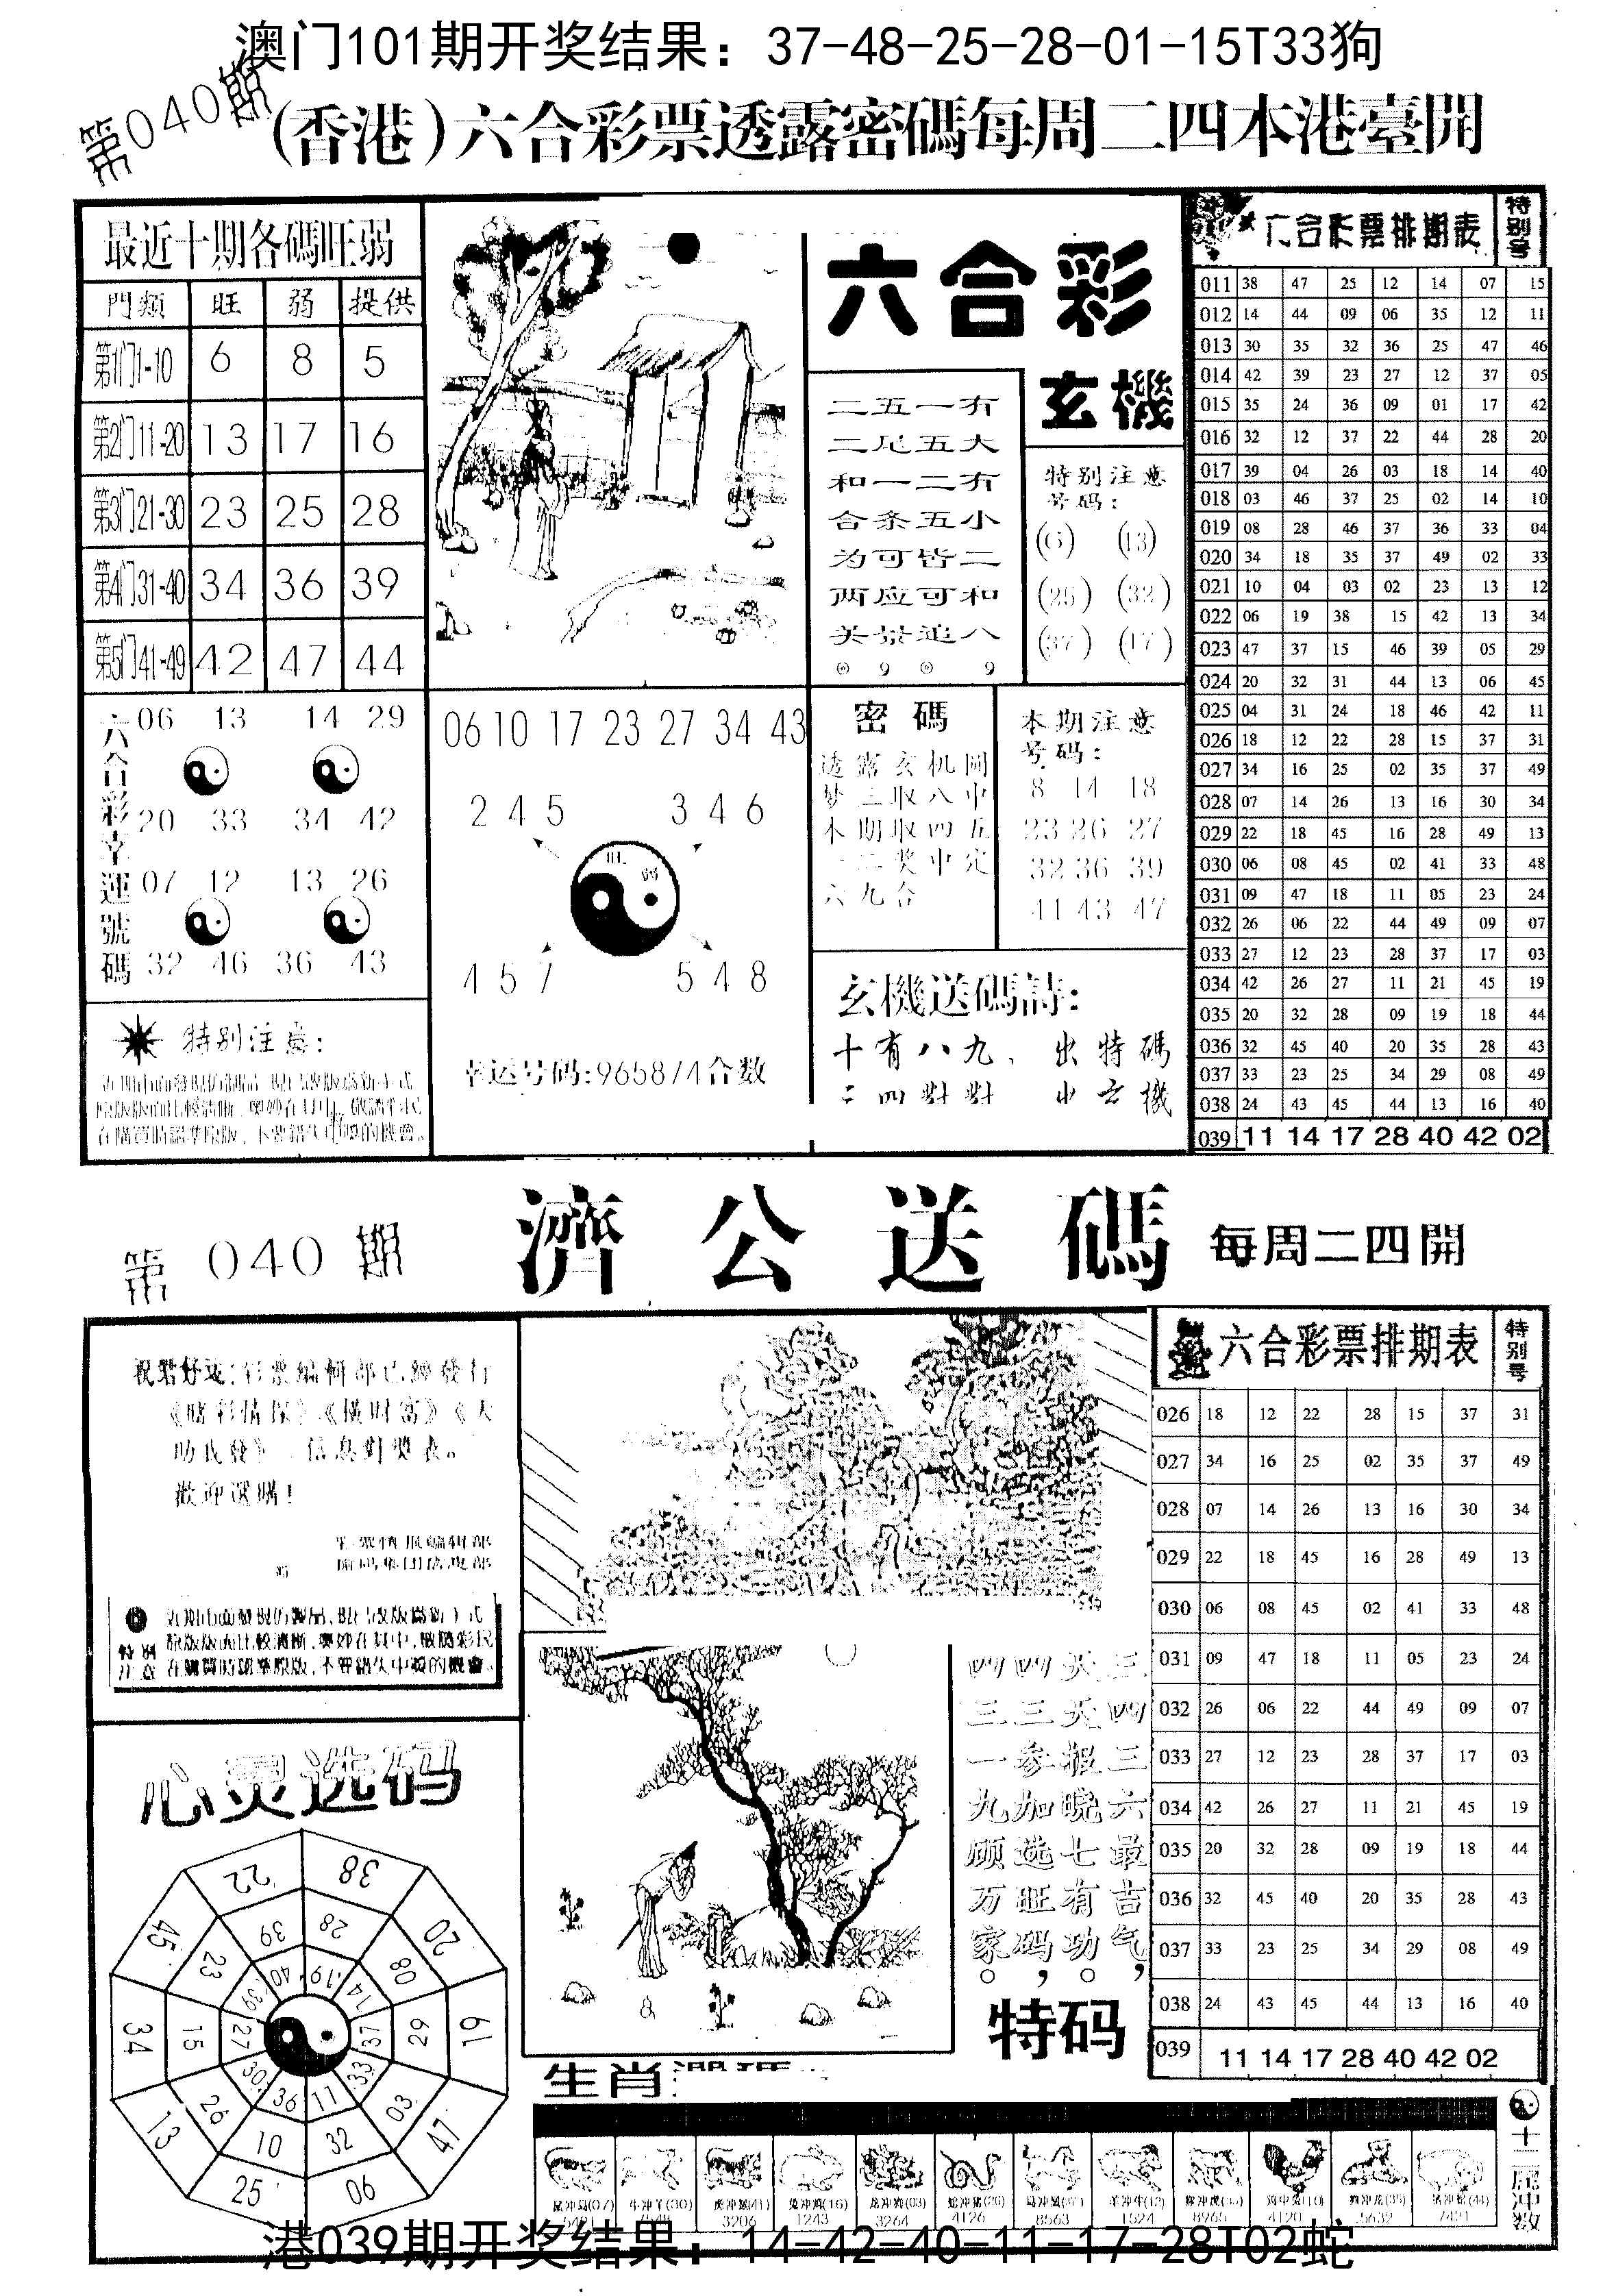 澳门101期开奖结果：37-48-25-28-01-15T33狗
第040期
(香港)六合彩票透露密碼每周二四本港臺開
最近十期各碼旺弱
門類 旺 弱 提供
第1门1-10 6 8 5
第2门11-20 13 17 16
第3门21-30 23 25 28
第4门31-40 34 36 39
第5门41-49 42 47 44
六合彩幸運號碼
06 13 14 29
20 33 34 42
07 12 13 26
32 46 36 43
特别注意:
在購買時認準原版，不要錯失中獎的機會。
06 10 17 23 27 34 43
2 4 5 3 4 6
旺 弱
4 5 7 5 4 8
幸运号码:965874合数
六合彩
玄機
二五一有
二尾五大
和一二有
合条五小
为可皆二
两应可和
美景追八
特别注意
号码:
(6) (13)
(25) (32)
(37) (17)
密碼
透露玄机圖
梦三取八中
本期取四五
一二奖中定
六九合
本期注意
号码:
8 14 18
23 26 27
32 36 39
41 43 47
玄機送碼詩:
十有八九、出特碼
三四對對 出玄機
六合彩票排期表 特别号
011 38 47 25 12 14 07 15
012 14 44 09 06 35 12 11
013 30 35 32 36 25 47 46
014 42 39 23 27 12 37 05
015 35 24 36 09 01 17 42
016 32 12 37 22 44 28 20
017 39 04 26 03 18 14 40
018 03 46 37 25 02 14 10
019 08 28 46 37 36 33 04
020 34 18 35 37 49 02 33
021 10 04 03 02 23 13 12
022 06 19 38 15 42 13 34
023 47 37 15 46 39 05 29
024 20 32 31 44 13 06 45
025 04 31 24 18 46 42 11
026 18 12 22 28 15 37 31
027 34 16 25 02 35 37 49
028 07 14 26 13 16 30 34
029 22 18 45 16 28 49 13
030 06 08 45 02 41 33 48
031 09 47 18 11 05 23 24
032 26 06 22 44 49 09 07
033 27 12 23 28 37 17 03
034 42 26 27 11 21 45 19
035 20 32 28 09 19 18 44
036 32 45 40 20 35 28 43
037 33 23 25 34 29 08 49
038 24 43 45 44 13 16 40
039 11 14 17 28 40 42 02
第040期
濟公送碼
每周二四開
祝君好运:彩票編輯部已經發行
《賭彩情探》《橫财富》《天
助我發》 信息對獎表。
歡迎選購!
特别注意
原版版面比較清晰，奧妙在其中，敬請彩民
在購買時認準原版，不要錯失中獎的機會。
心灵选码
22 38 20 19 47 06 25 13 34 45
39 28 08 29 03 32 10 26 15 23
40 19 14 37 33 11 36 30 27 39
四四头三
三三头四
一参报三
九加晓六
顾选七最
万旺有吉
家码功气
。，。，
特码
六合彩票排期表 特别号
026 18 12 22 28 15 37 31
027 34 16 25 02 35 37 49
028 07 14 26 13 16 30 34
029 22 18 45 16 28 49 13
030 06 08 45 02 41 33 48
031 09 47 18 11 05 23 24
032 26 06 22 44 49 09 07
033 27 12 23 28 37 17 03
034 42 26 27 11 21 45 19
035 20 32 28 09 19 18 44
036 32 45 40 20 35 28 43
037 33 23 25 34 29 08 49
038 24 43 45 44 13 16 40
039 11 14 17 28 40 42 02
生肖
十二屬冲数
鼠冲马(07) 牛冲羊(30) 虎冲猴(41) 兔冲鸡(16) 龙冲狗(03) 蛇冲猪(26) 羊冲牛(12)
3206 1243 3264 4126 8563 1524 8965 4120 5632 7421
港039期开奖结果：14-42-40-11-17-28T02蛇